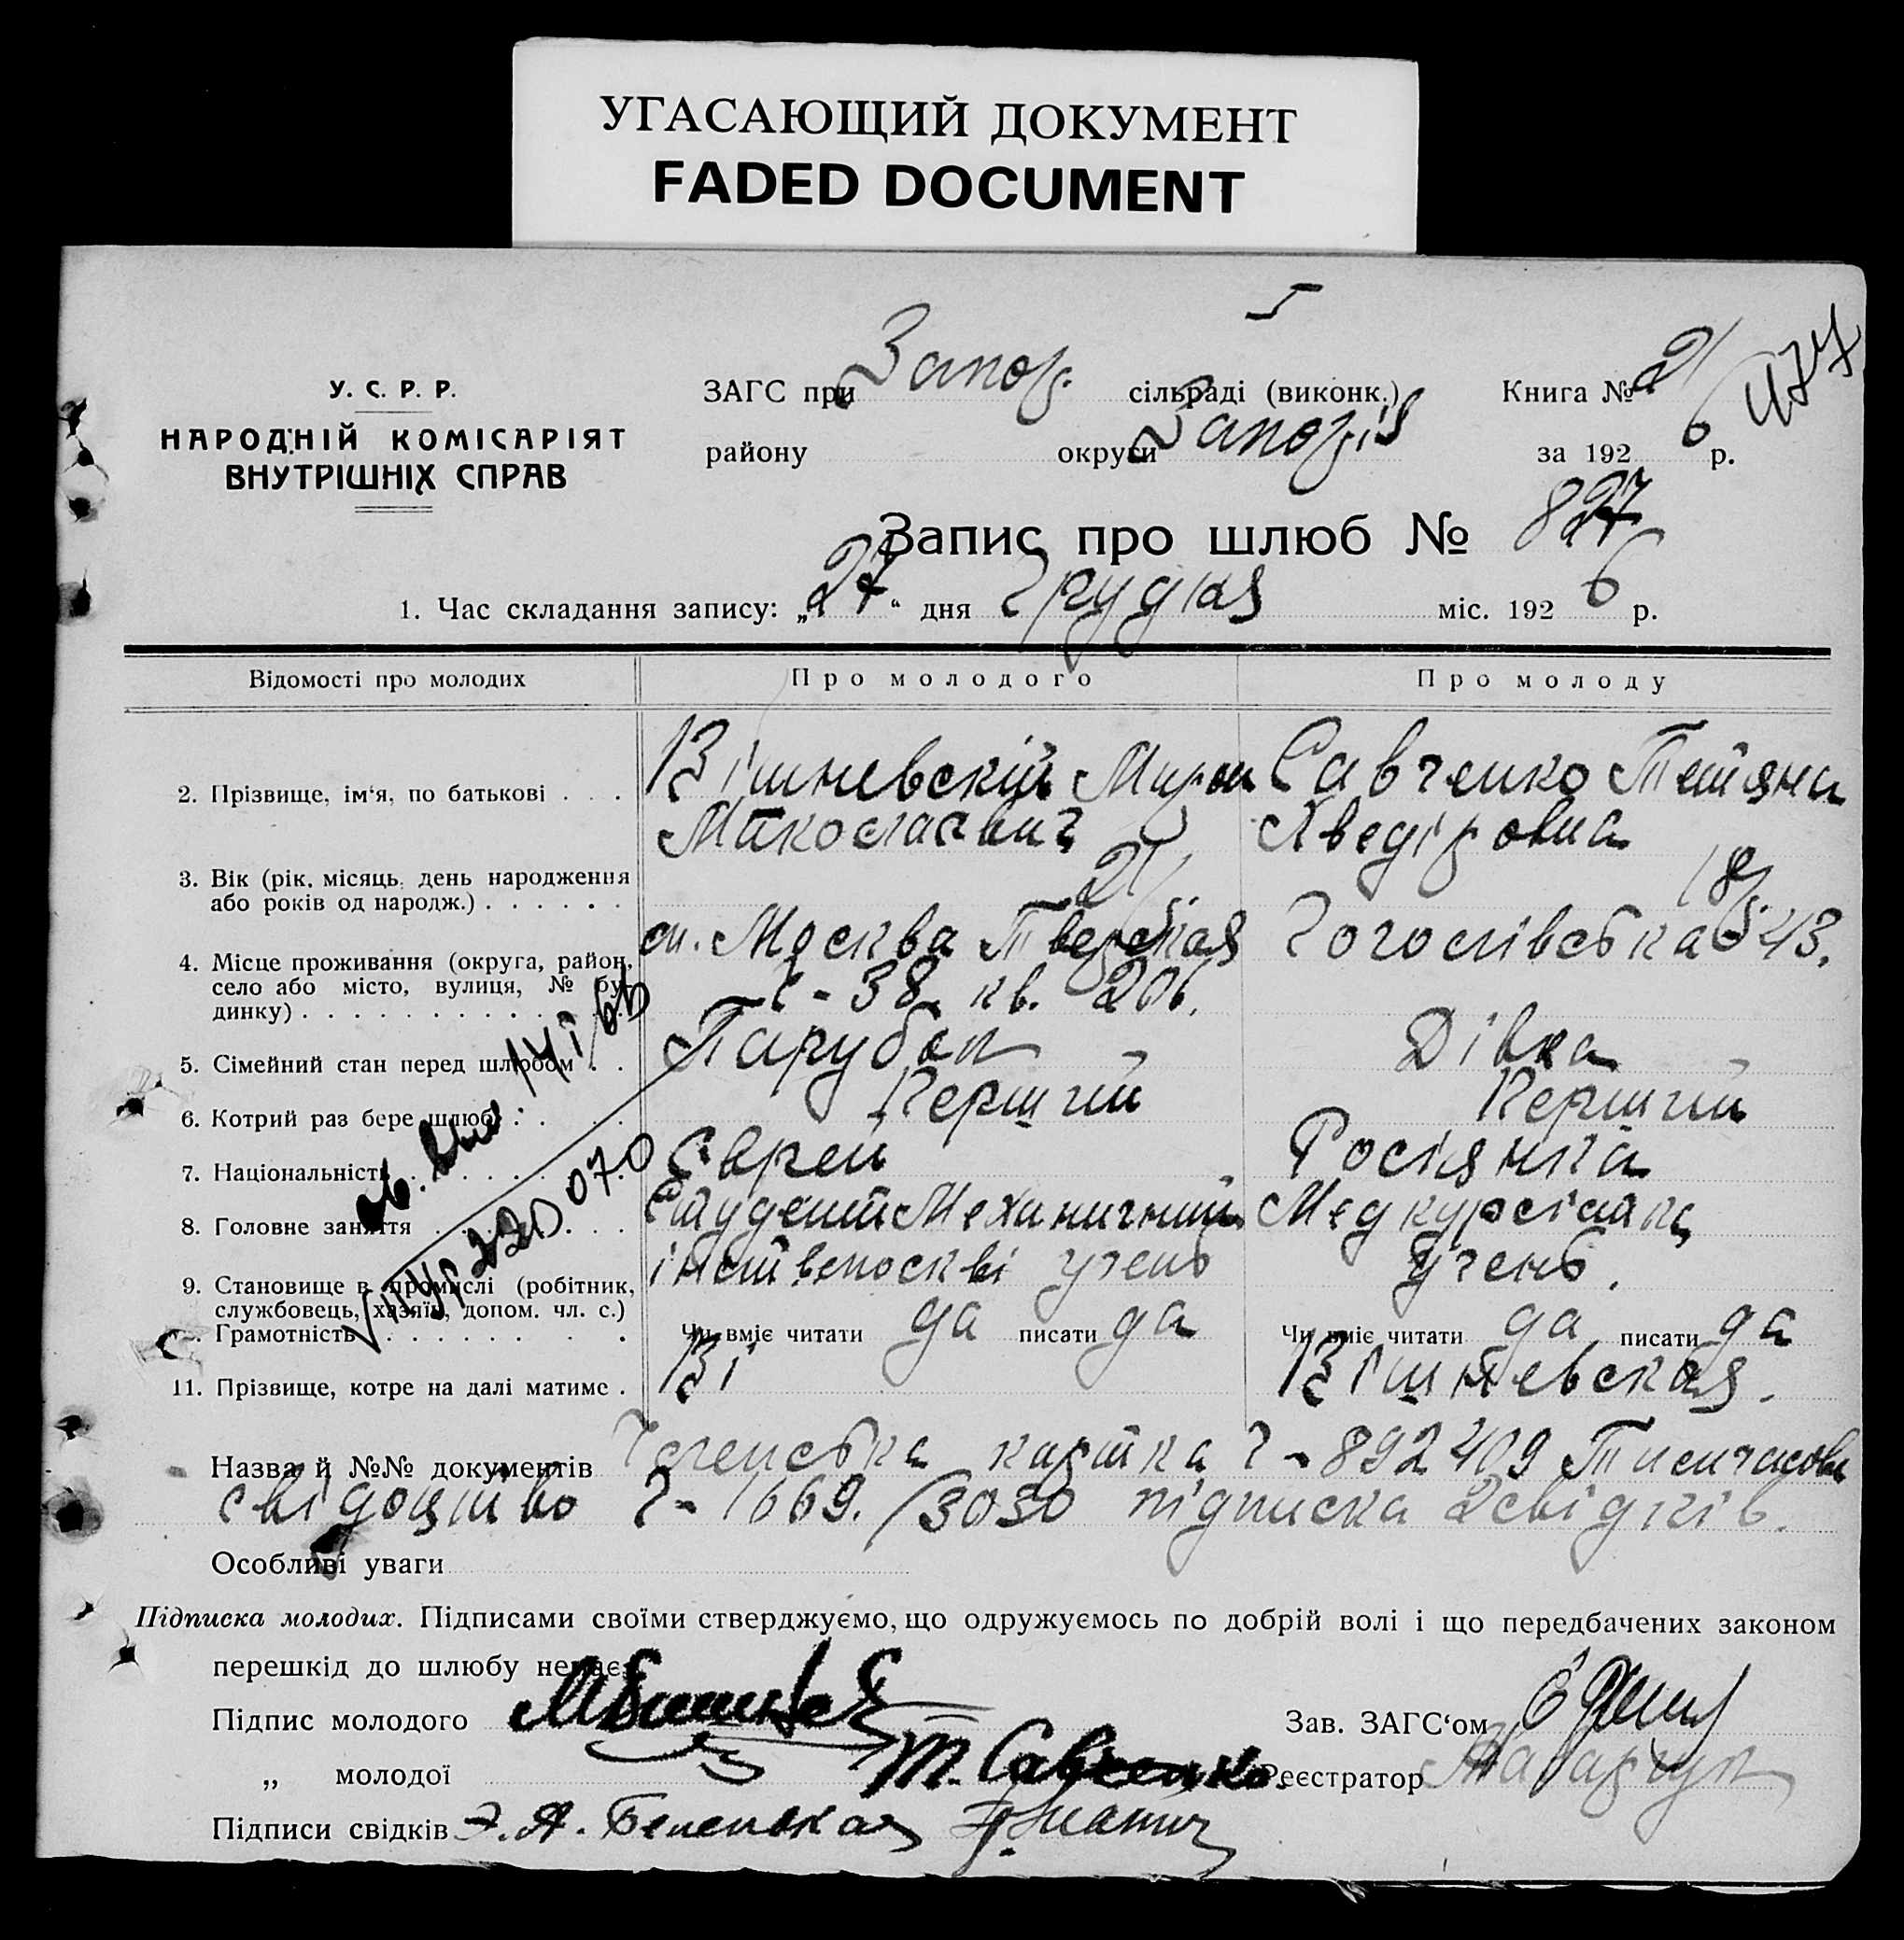 УГАСАЮЩИЙ ДОКУМЕНТ
FADED DOCUMENT
У. С. Р. Р.
НАРОДНІЙ КОМІСАРІЯТ
ВНУТРІШНІХ СПРАВ
ЗАГС при Запор. сільраді (виконк.) Книга № 2
району округи за 192 6 р.
Запис про шлюб № 827
1. Час складання запису: „27“ дня Грудня міс. 192 6 р.
Відомості про молодих Про молодого Про молоду
2. Прізвище, ім‘я, по батькові . . . Вішневскій Мирон Савченко Тетяна
3. Вік (рік, місяць, день народження
або років од народж.) . . . . . . 21 18
4. Місце проживання (округа, район, м. Москва Тверская Гоголівська 43.
село або місто, вулиця, № бу-
динку) . . . . . . . . . . . . . ч - 38 кв. 206.
5. Сімейний стан перед шлюбом . . Парубок Дівка
6. Котрий раз бере шлюб . . . . . Перший Перший
7. Національність . . . . . . . . . Єврей Росіянка
8. Головне заняття . . . . . . . . Студент Механичний Медкурсістка
9. Становище в промислі (робітник, інст в москві учень учень.
службовець, хазяїн, допом. чл. с.)
Грамотність . . . . . . . . . Чи вміє читати да писати да Чи вміє читати да писати да
11. Прізвище, котре на далі матиме . Ві Вішневская.
Назва й №№ документів картка ч - 892409 Тимчасове
свідоцтво ч - 1669./3030 підписка 2 свідків.
Особливі уваги
Підписка молодих. Підписами своїми стверджуємо, що одружуємось по добрій волі і що передбачених законом
перешкід до шлюбу немає
Підпис молодого Зав. ЗАГС‘ом
„ молодої Т. Савченко. Реєстратор
Підписи свідків Э. А.